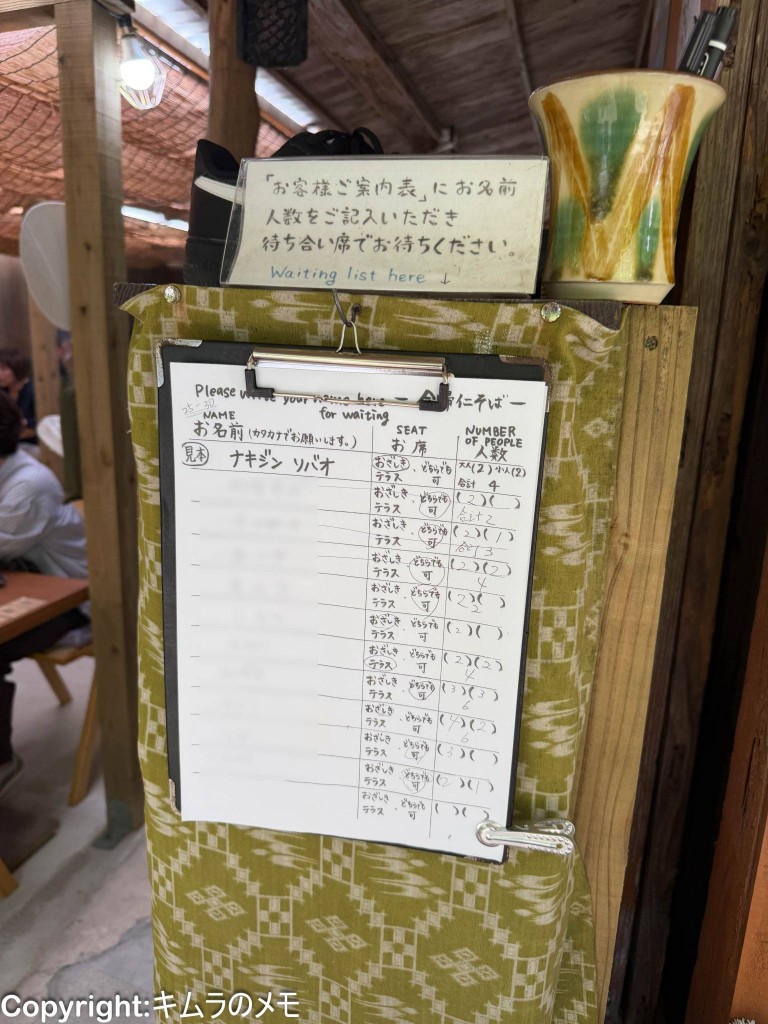 「お客様ご案内表」にお名前
人数をご記入いただき
待ち合い席でお待ちください。
Waiting list here ↓
Please write your name here for waiting
仁そば ー
25-32
NAME
お名前(カタカナでお願いします。)
SEAT
お席
NUMBER OF PEOPLE
人数
見本 ナキジン ソバオ おざしき・テラス どちらでも可 大人(2) 小人(2) 合計 4
おざしき・テラス どちらでも可 (2)( ) 合計2
おざしき・テラス どちらでも可 (2)(1) 合計3
おざしき・テラス どちらでも可 (2)(2) 4
おざしき・テラス どちらでも可 (2)( ) 2
おざしき・テラス どちらでも可 (2)( )
おざしき・テラス どちらでも可 (2)(2) 4
おざしき・テラス どちらでも可 (3)(3) 6
おざしき・テラス どちらでも可 (4)(2) 6
おざしき・テラス どちらでも可 (3)( )
おざしき・テラス どちらでも可 (2)(1)
おざしき・テラス どちらでも可 ( )( )
Copyright:キムラのメモ